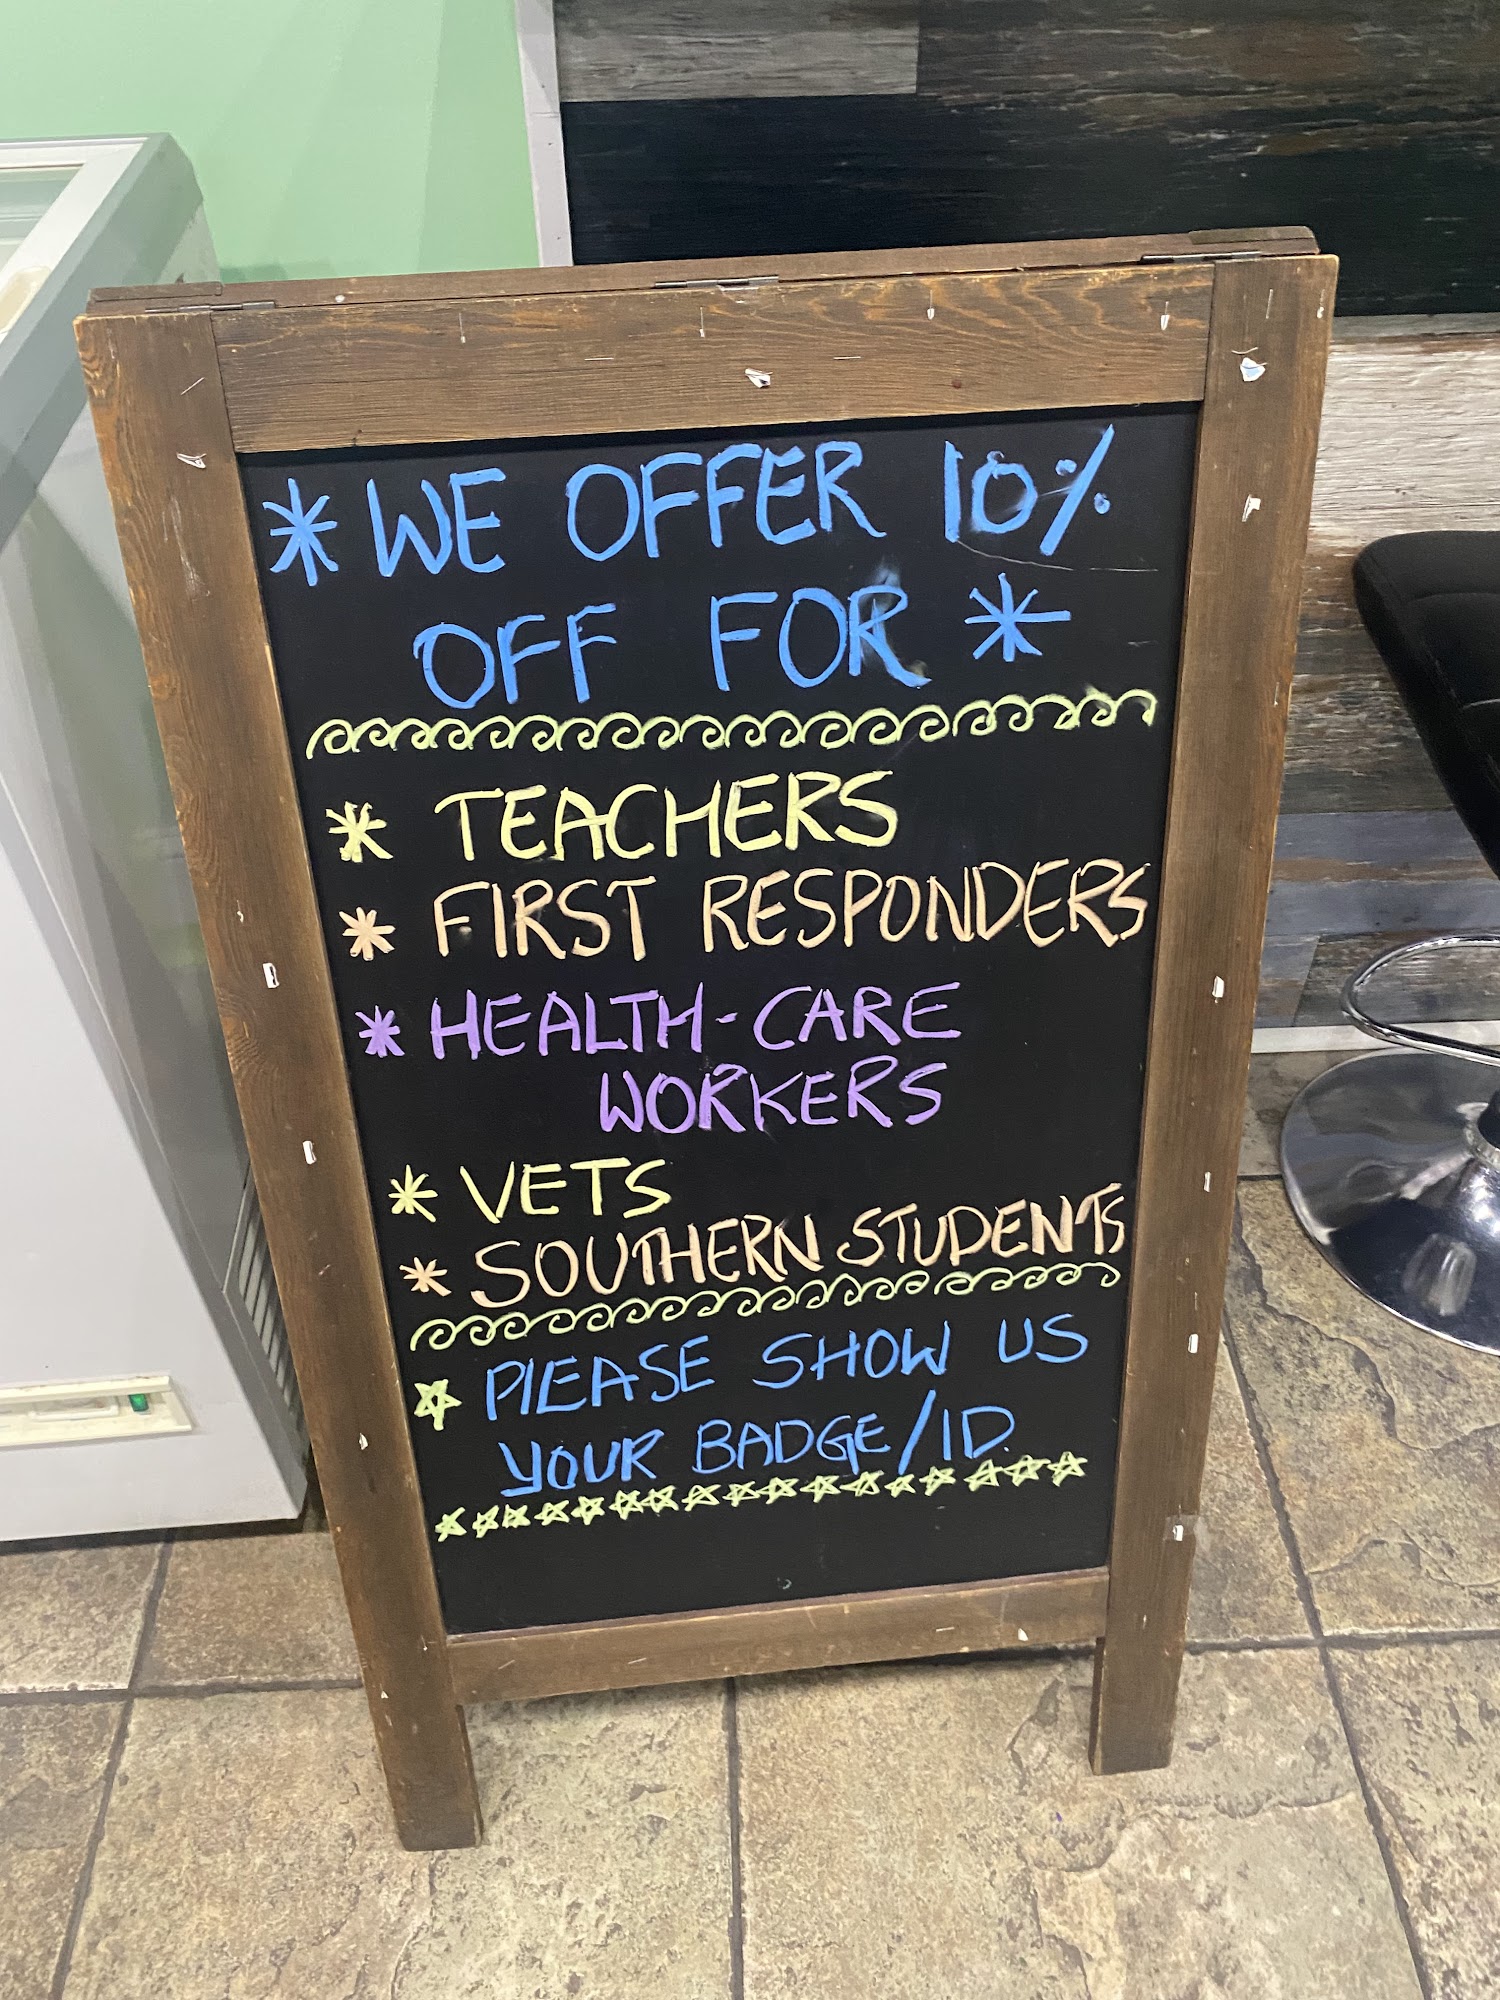 * WE OFFER 10%
OFF FOR *
* TEACHERS
* FIRST RESPONDERS
* HEALTH-CARE
WORKERS
* VETS
* SOUTHERN STUDENTS
☆ PLEASE SHOW US
YOUR BADGE/ID.